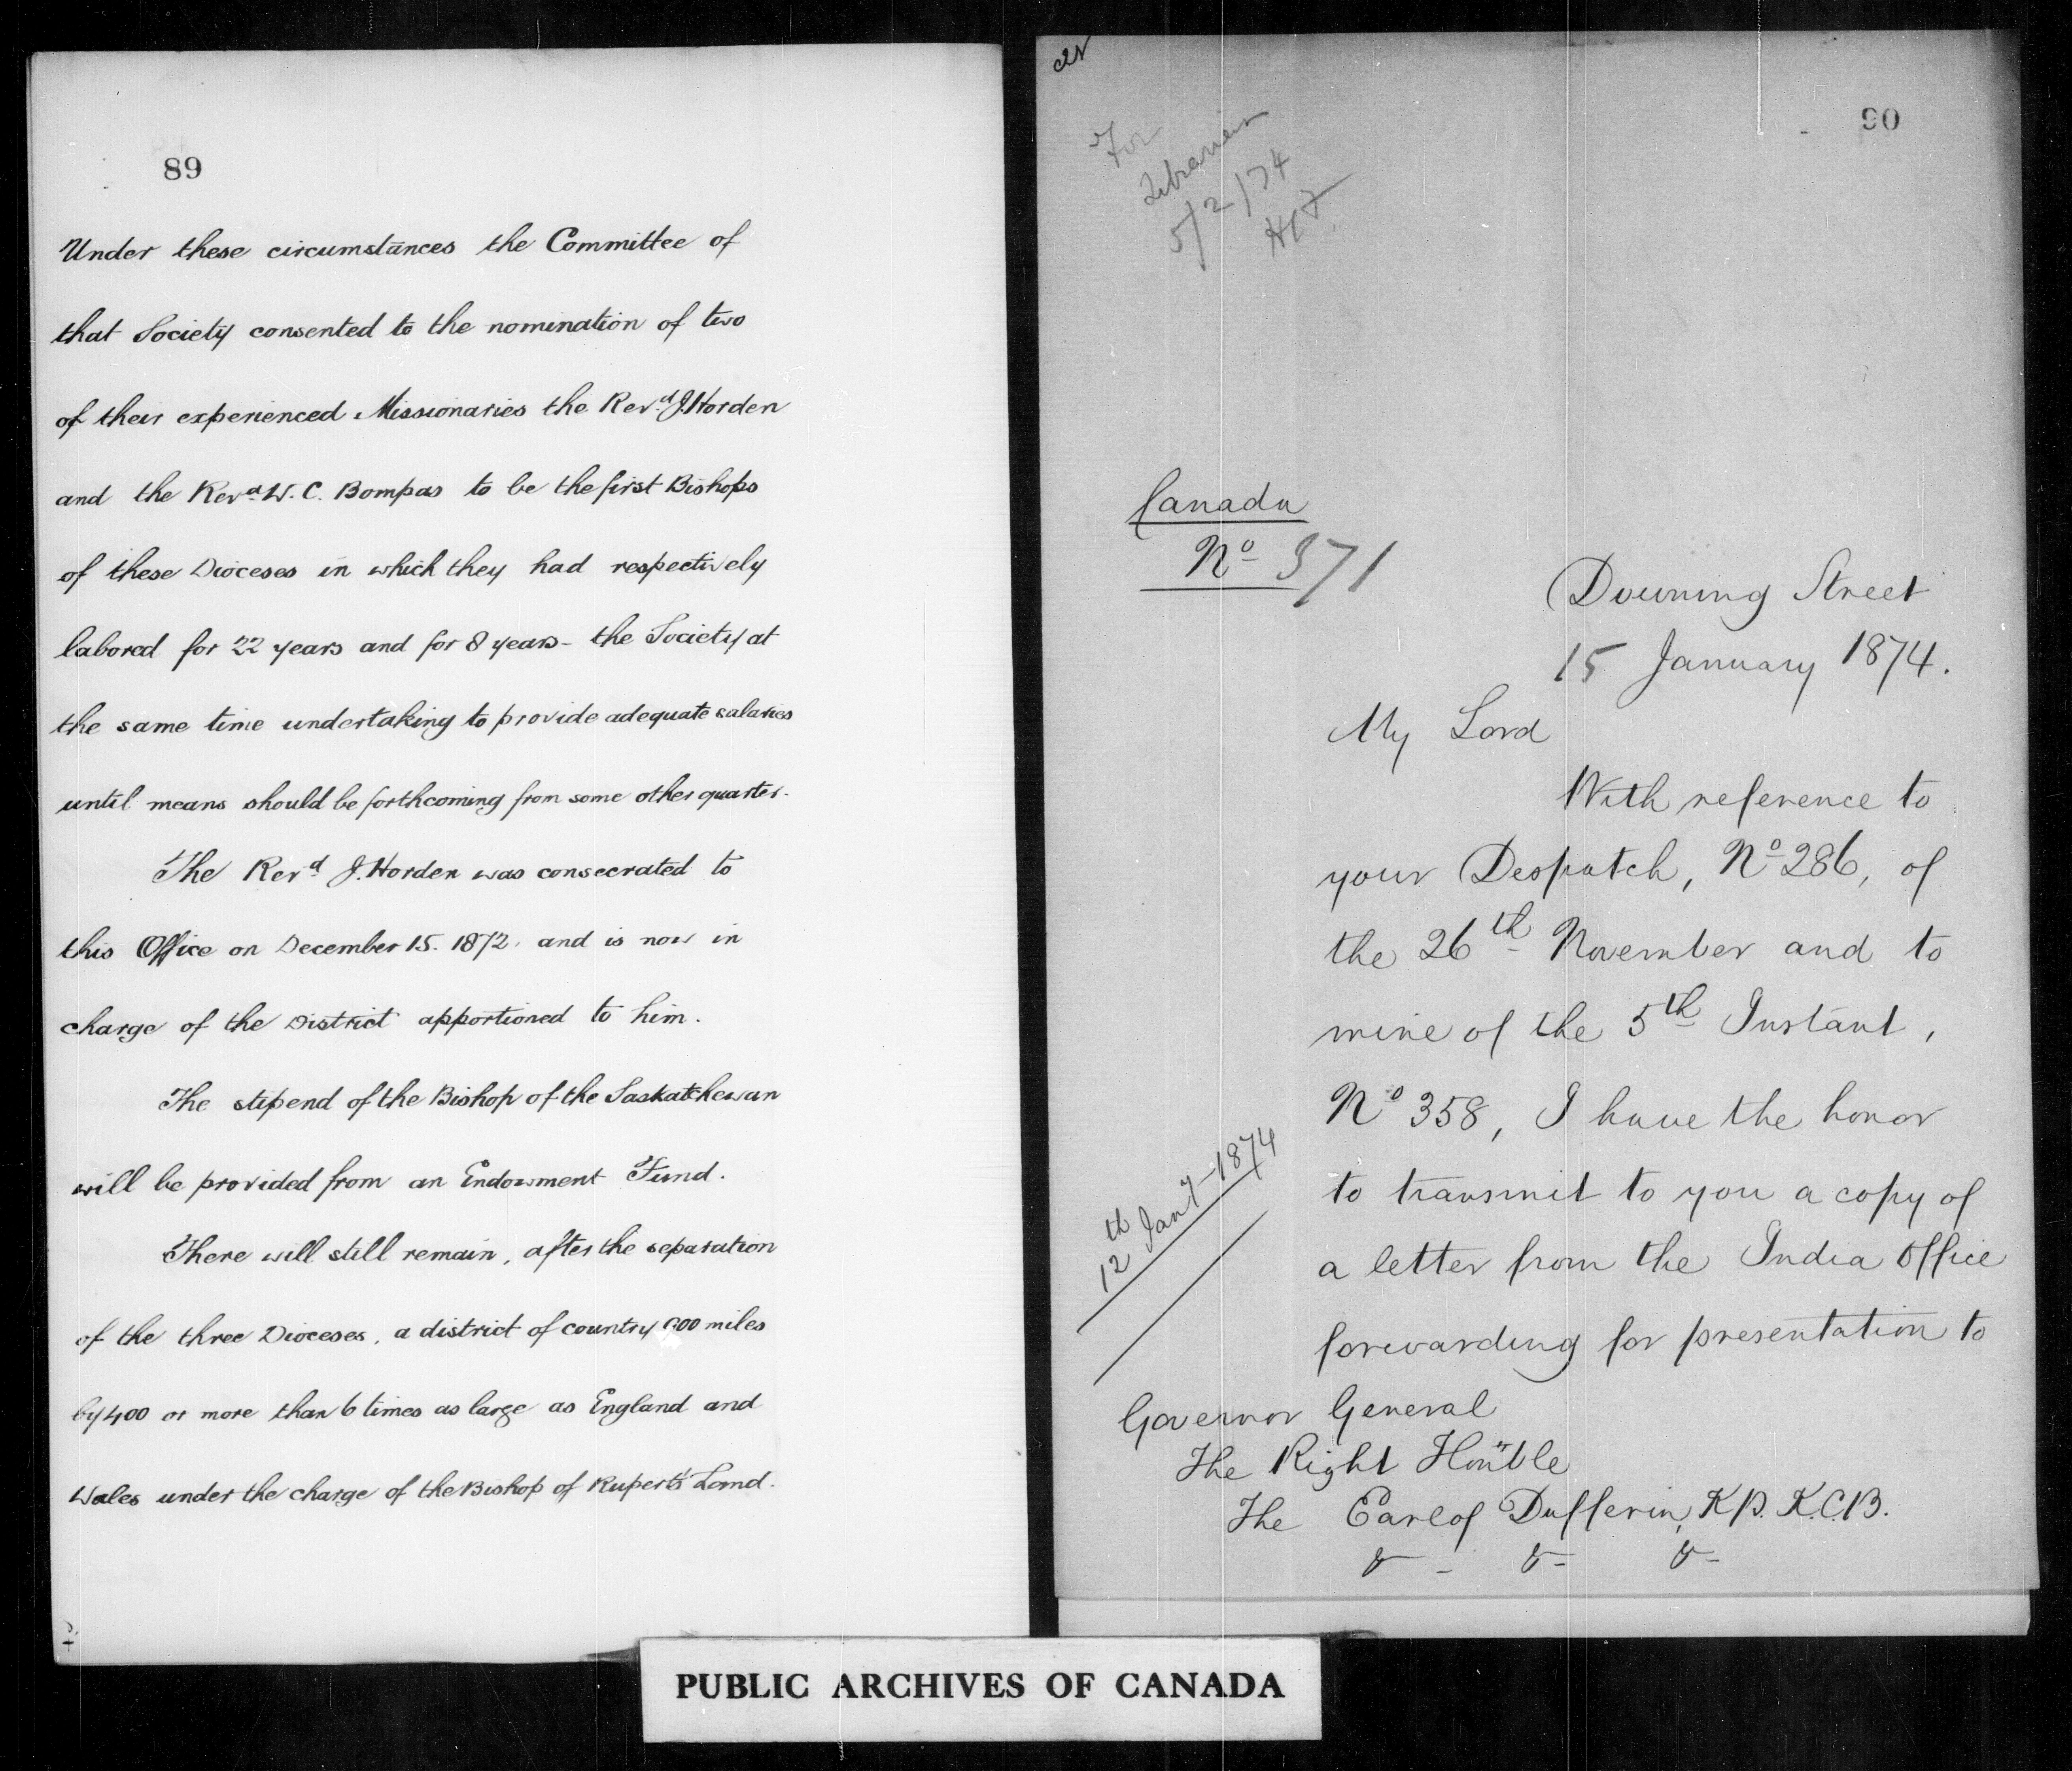 89
Under these circumstances the Committee of
that Society consented to the nomination of two
of their experienced Missionaries the Revd. J. Horden
and the Revd. W. C. Bompas to be the first Bishops
of these Dioceses in which they had respectively
labored for 22 years and for 8 years - the Society at
the same time undertaking to provide adequate salaries
until means should be forthcoming from some other quarter.
The Revd. J. Horden was consecrated to
this Office on December 15. 1872. and is now in
charge of the District apportioned to him.
The stipend of the Bishop of the Saskatchewan
will be provided from an Endowment Fund.
There will still remain, after the separation
of the three Dioceses, a district of country 900 miles
by 400 or more than 6 times as large as England and
Wales under the charge of the Bishop of Rupert's Land.
90
For
Librarian
5/2/74
Canada
No 371
Downing Street
15 January 1874.
My Lord
With reference to
your Despatch, No 286, of
the 26th November and to
mine of the 5th Instant,
No 358, I have the honor
to transmit to you a copy of
a letter from the India Office
forwarding for presentation to
12th Jany - 1874
Governor General
The Right Honble
The Earl of Dufferin, K.P. K.C.B.
& - & - & -
PUBLIC ARCHIVES OF CANADA